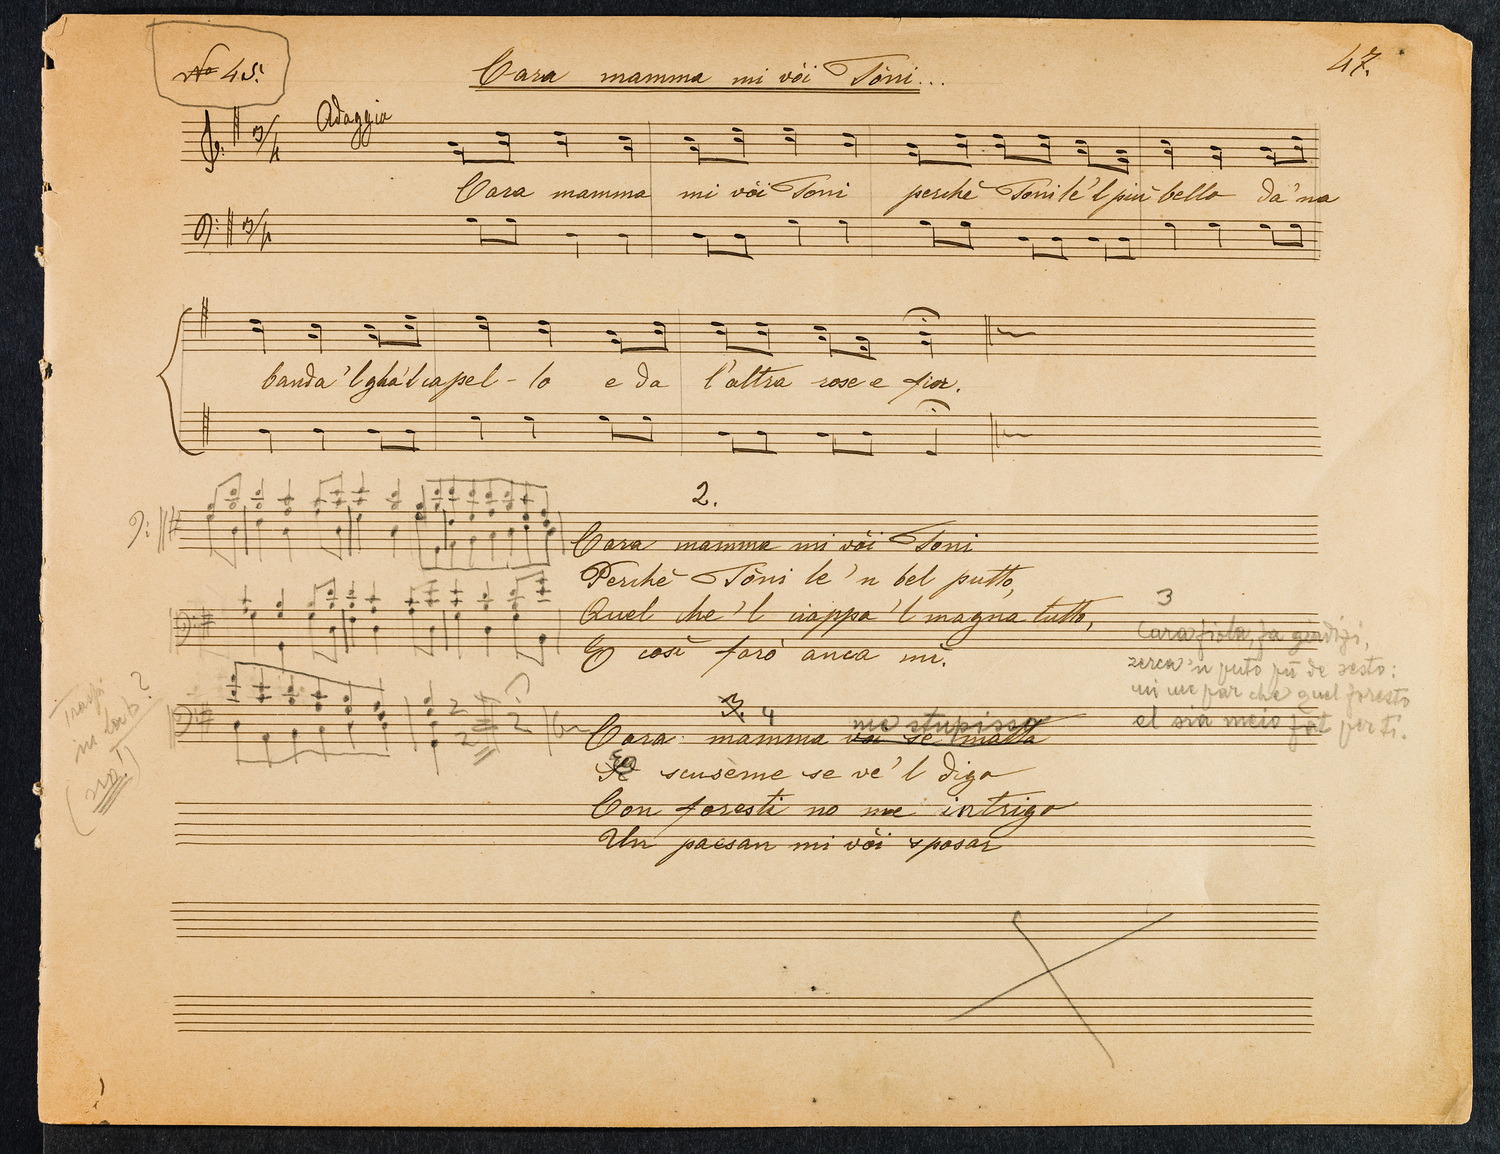 No 45.
Cara mamma mi vòi Tòni...
47.
Adaggio
3/4
Cara mamma mi vòi Toni perchè Toni le'l più bello da'na
3/4
banda'l gha'l capel-lo e da l'altra rose e fior.
2.
Cara mamma mi vòi Toni
Perchè Tòni le'n bel putto,
Quel che'l ciappa'l magna tutto,
E così farò anca mi.
3
Cara fiola, fa giudizi,
zerca'n puto pù de sesto:
mi me par che quel foresto
el sia meio fat per ti.
in
(no!)
3. 4
me stupisso
Cara mamma voi se matta
scusème se ve'l digo
Con foresti no me intrigo
Un paesan mi vòi sposar